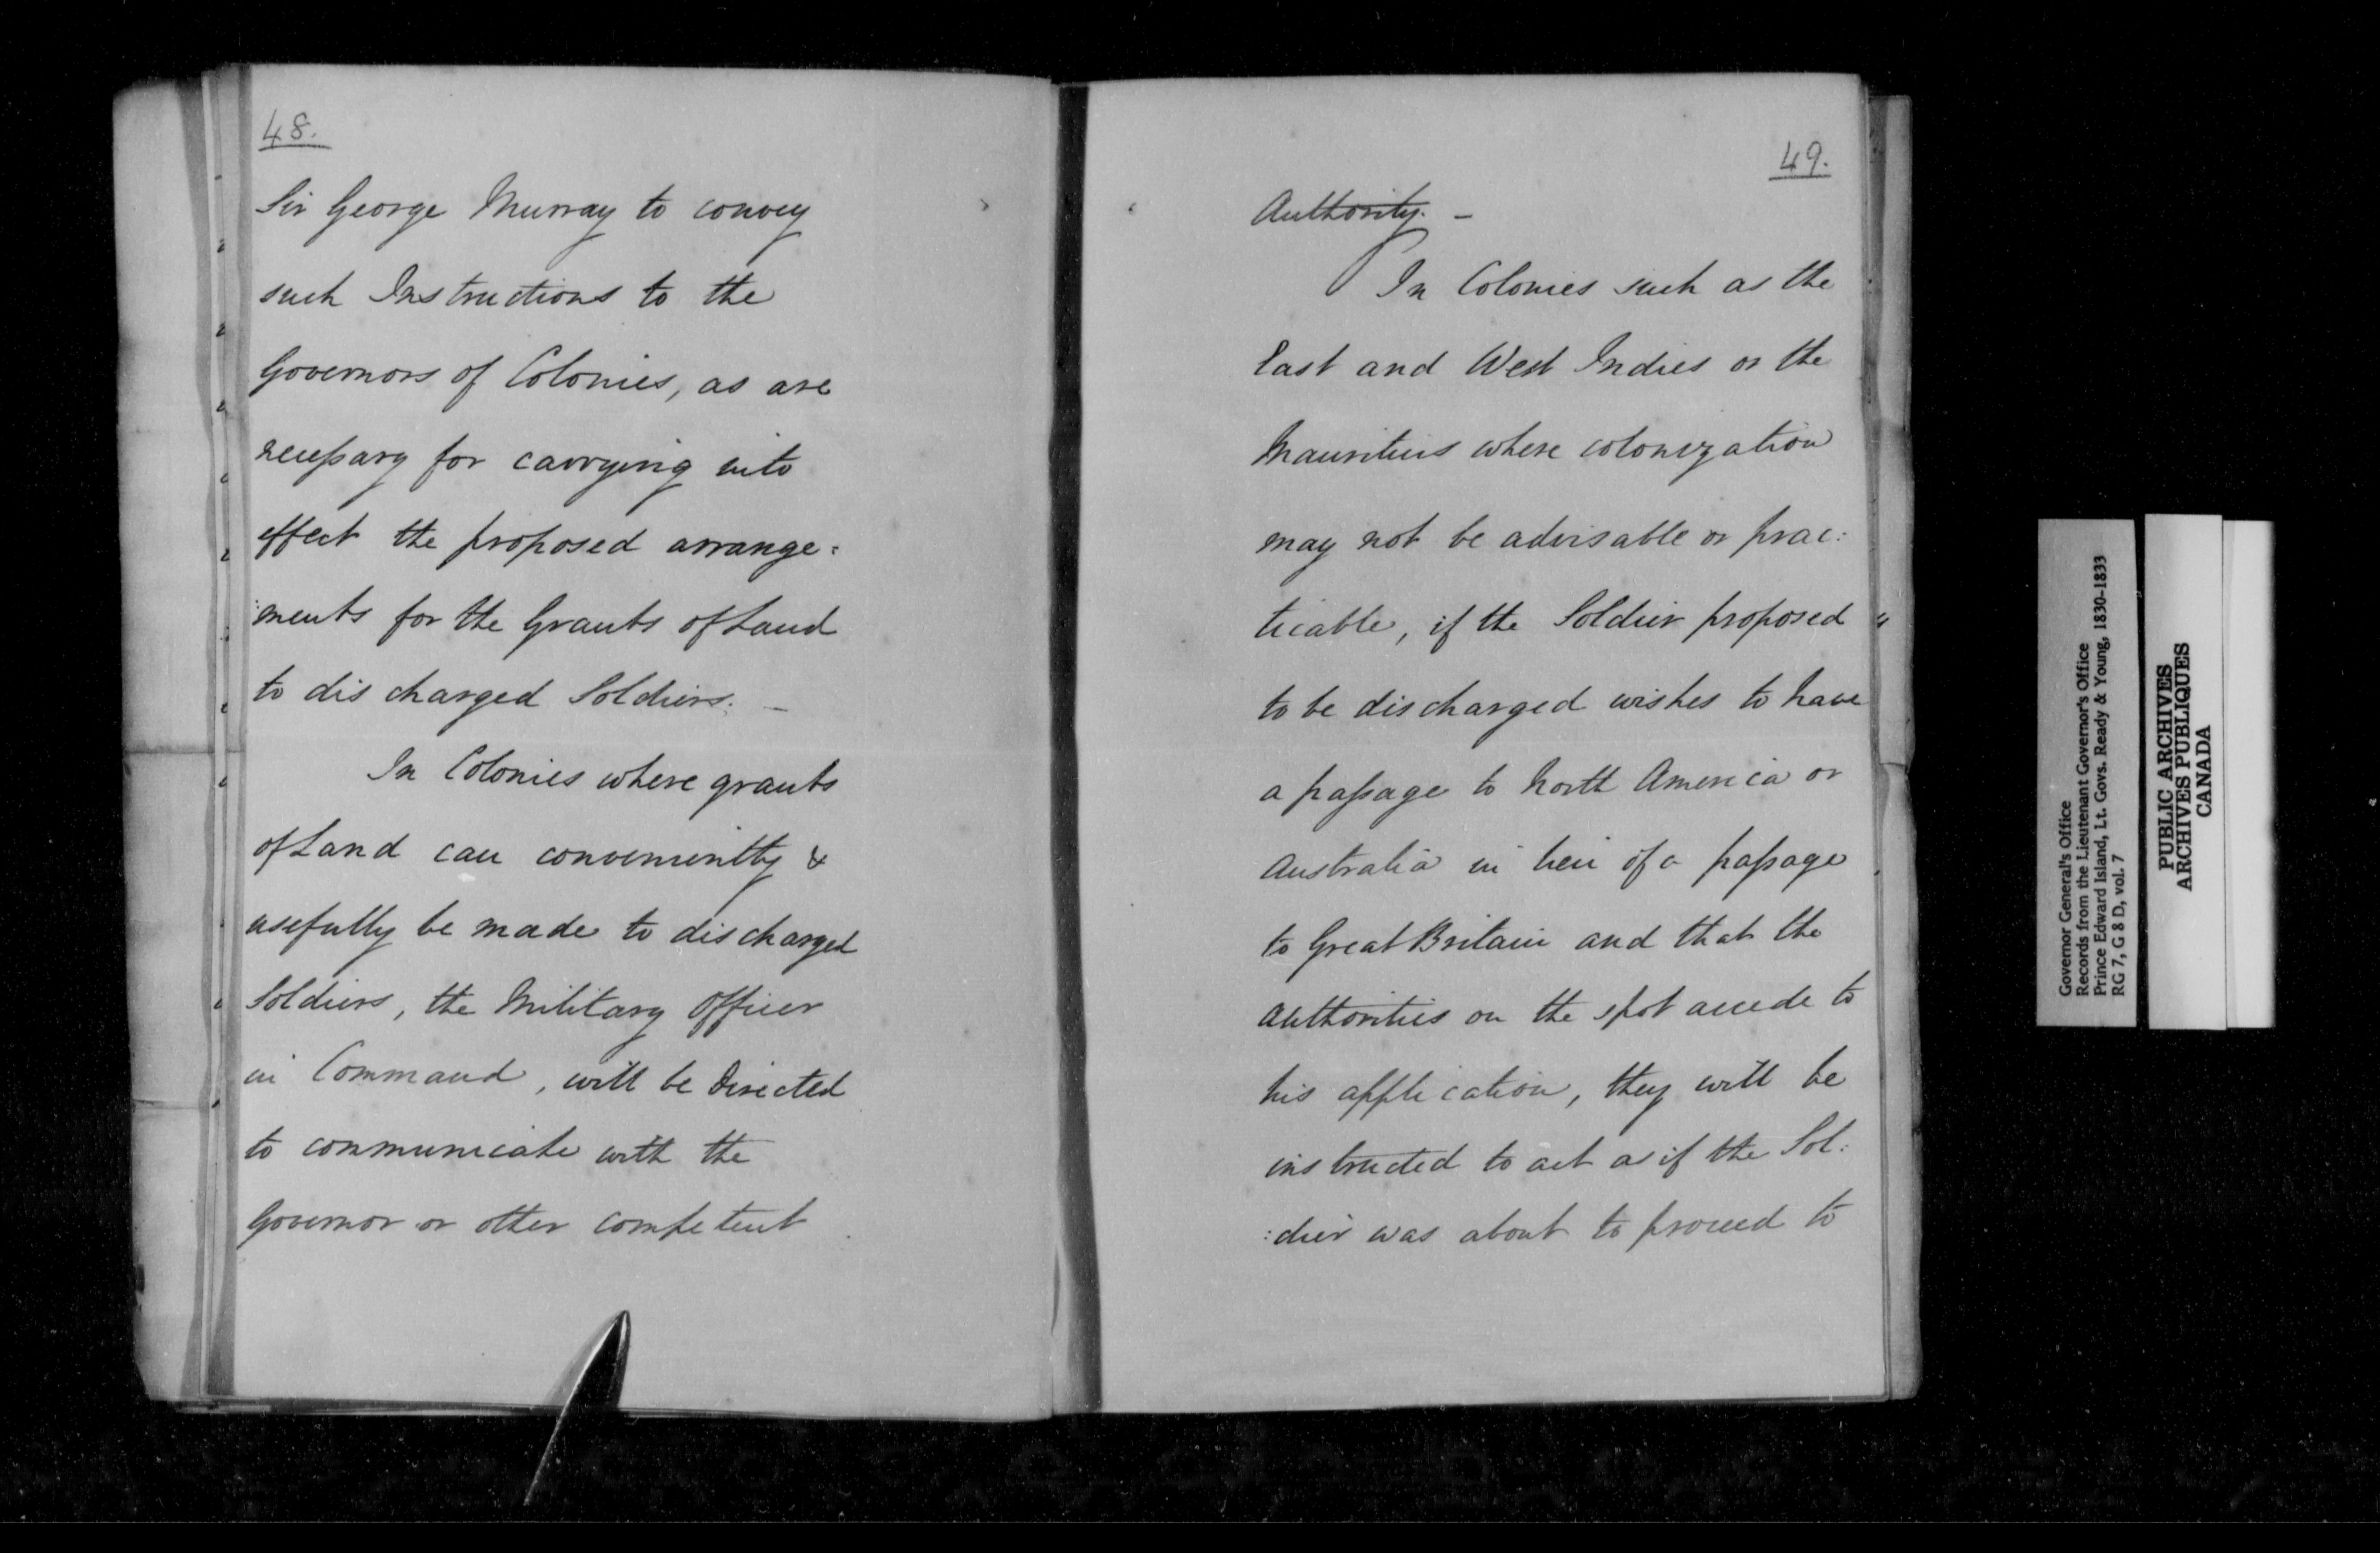 48.
Sir George Murray to convey
such Instructions to the
Governors of Colonies, as are
necessary for carrying into
effect the proposed arrange:
:ments for the Grants of Land
to discharged Soldiers. —
In Colonies where grants
of Land can conveniently &
usefully be made to discharged
Soldiers, the Military Officer
in Command, will be directed
to communicate with the
Governor or other competent
49.
Authority. —
In Colonies such as the
East and West Indies or the
Mauritius where colonization
may not be advisable or prac:
ticable, if the Soldier proposed
to be discharged wishes to have
a passage to North America or
Australia in lieu of a passage
to Great Britain and that the
authorities on the spot accede to
his application, they will be
instructed to act as if the Sol:
:dier was about to proceed to
Governor General's Office
Records from the Lieutenant Governor's Office
Prince Edward Island, Lt. Govs. Ready & Young, 1830-1833
RG 7, G 8 D, vol. 7
PUBLIC ARCHIVES
ARCHIVES PUBLIQUES
CANADA